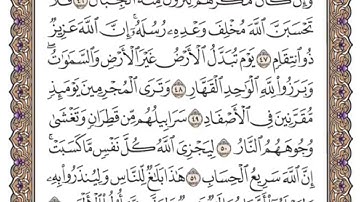 وَإِن كَانَ مَكْرُهُمْ لِتَزُولَ مِنْهُ الْجِبَالُ ٤٦ فَلَا
تَحْسَبَنَّ اللَّهَ مُخْلِفَ وَعْدِهِ رُسُلَهُ إِنَّ اللَّهَ عَزِيزٌ
ذُو انتِقَامٍ ٤٧ يَوْمَ تُبَدَّلُ الْأَرْضُ غَيْرَ الْأَرْضِ وَالسَّمَاوَاتُ
وَبَرَزُوا لِلَّهِ الْوَاحِدِ الْقَهَّارِ ٤٨ وَتَرَى الْمُجْرِمِينَ يَوْمَئِذٍ
مُّقَرَّنِينَ فِي الْأَصْفَادِ ٤٩ سَرَابِيلُهُم مِّن قَطِرَانٍ وَتَغْشَىٰ
وُجُوهَهُمُ النَّارُ ٥٠ لِيَجْزِيَ اللَّهُ كُلَّ نَفْسٍ مَّا كَسَبَتْ
إِنَّ اللَّهَ سَرِيعُ الْحِسَابِ ٥١ هَٰذَا بَلَاغٌ لِّلنَّاسِ وَلِيُنذَرُوا بِهِ